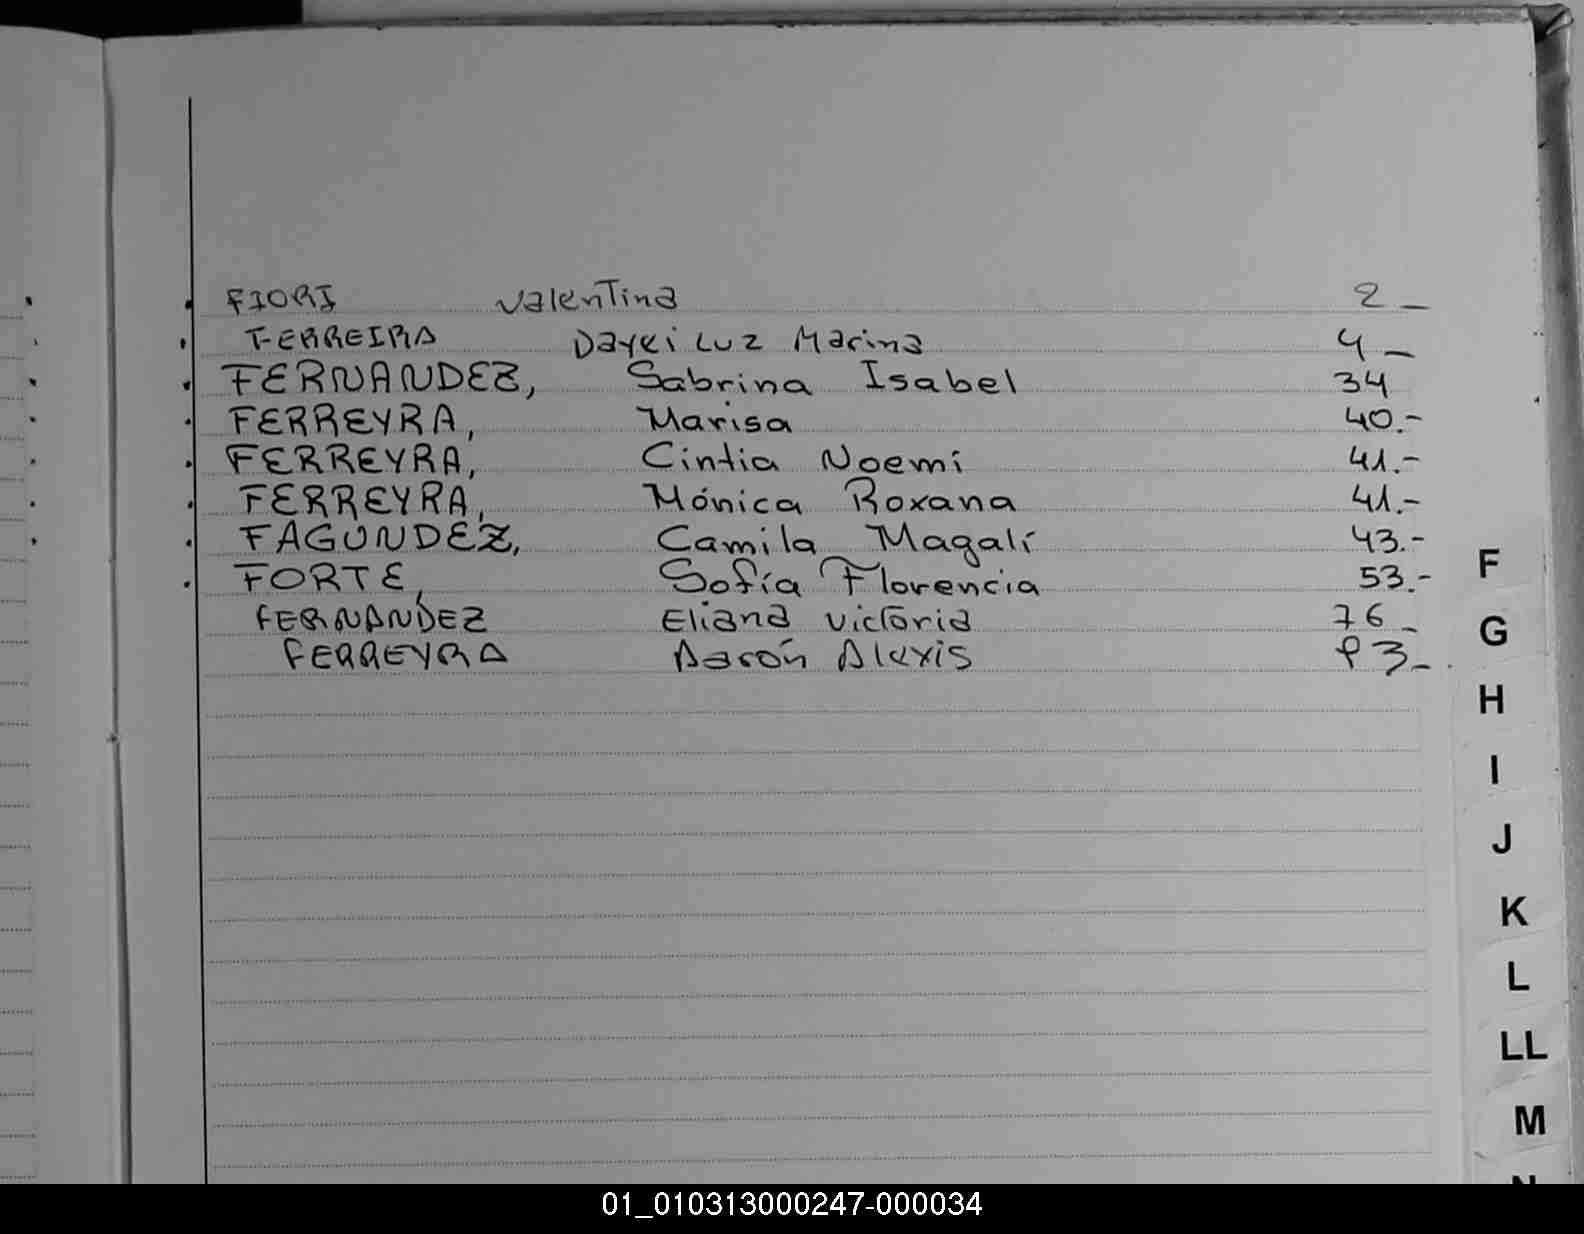 FIORI Valentina 2_
FERREIRA Dayei Luz Marina 4_
FERNANDEZ, Sabrina Isabel 34
FERREYRA, Marisa 40.-
FERREYRA, Cintia Noemí 41.-
FERREYRA, Mónica Roxana 41.-
FAGUNDEZ, Camila Magalí 43.-
FORTE, Sofía Florencia 53.-
FERNANDEZ Eliana Victoria 76_
FERREYRA Aarón Alexis 93_
F
G
H
I
J
K
L
LL
M
01_010313000247-000034